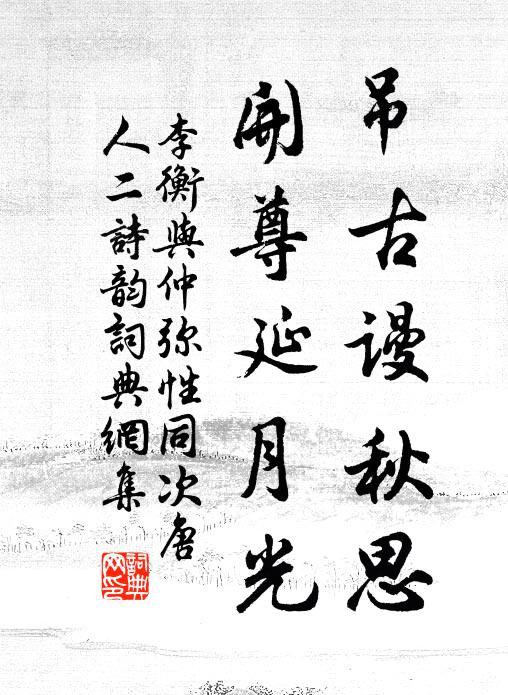 吊古謾秋思
開尊延月光
李衡與仲弥性同次唐
人二詩韵詞典網集
詞典
网印